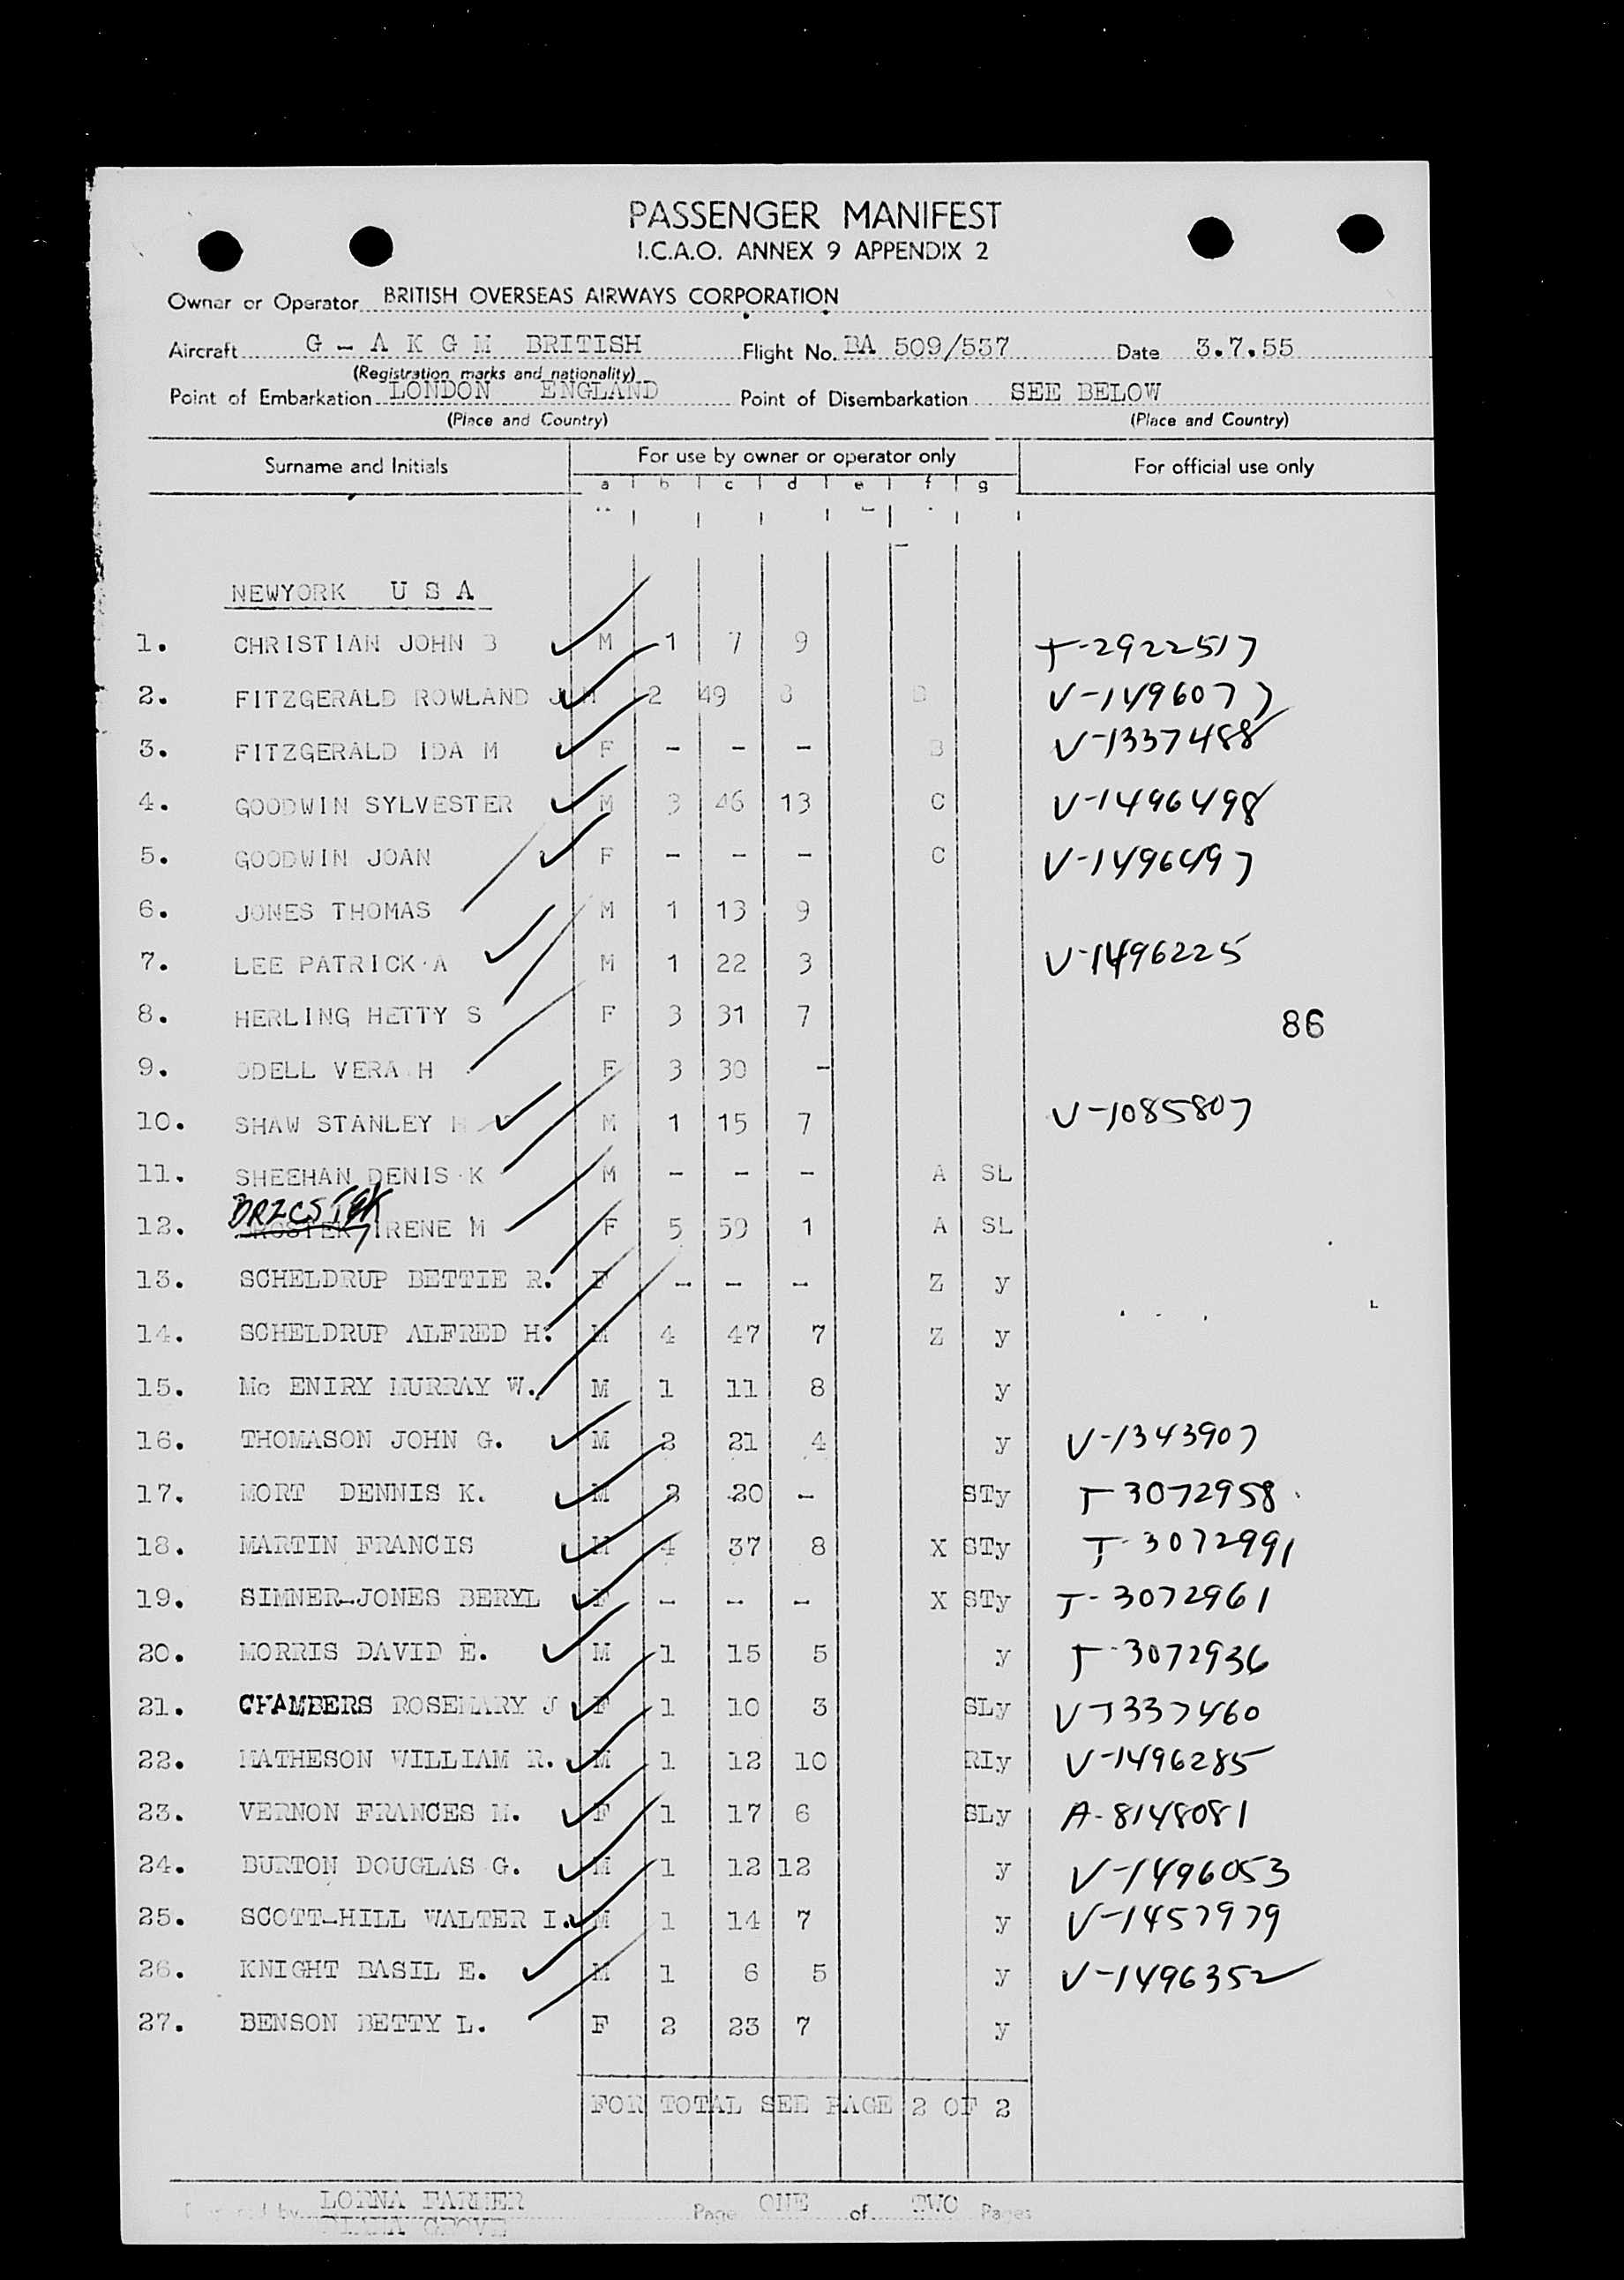 PASSENGER MANIFEST
I.C.A.O. ANNEX 9 APPENDIX 2
Owner or Operator BRITISH OVERSEAS AIRWAYS CORPORATION
Aircraft G - A K G M BRITISH Flight No. BA 509/537 Date 3.7.55
(Registration marks and nationality)
Point of Embarkation LONDON ENGLAND Point of Disembarkation SEE BELOW
(Place and Country) (Place and Country)
Surname and Initials For use by owner or operator only For official use only
a b c d e f g
NEWYORK U S A
1. CHRISTIAN JOHN B M 1 7 9 T-2922517
2. FITZGERALD ROWLAND J M 2 49 8 B V-1496077
3. FITZGERALD IDA M F - - - B V-1337488
4. GOODWIN SYLVESTER M 3 46 13 C V-1496498
5. GOODWIN JOAN F - - - C V-1496497
6. JONES THOMAS M 1 13 9
7. LEE PATRICK A M 1 22 3 V-1496225
8. HERLING HETTY S F 3 31 7
86
9. ODELL VERA H F 3 30 -
10. SHAW STANLEY H M 1 15 7 V-1085807
11. SHEEHAN DENIS K M - - - A SL
BRZCSTEK
12. IRENE M F 5 59 1 A SL
13. SCHELDRUP BETTIE R. F - - - Z y
14. SCHELDRUP ALFRED H. M 4 47 7 Z y
15. Mc ENIRY MURRAY W. M 1 11 8 y
16. THOMASON JOHN G. M 2 21 4 y V-1343907
17. MORT DENNIS K. M 2 20 - STy T-3072958
18. MARTIN FRANCIS M 4 37 8 X STy T-3072991
19. SIMNER-JONES BERYL F - - - X STy T-3072961
20. MORRIS DAVID E. M 1 15 5 y T-3072936
21. CHAMBERS ROSEMARY J F 1 10 3 SLy V-1337460
22. MATHESON WILLIAM R. M 1 12 10 RIy V-1496285
23. VERNON FRANCES M. F 1 17 6 SLy A-8148081
24. BURTON DOUGLAS G. M 1 12 12 y V-1496053
25. SCOTT-HILL WALTER I. M 1 14 7 y V-1457979
26. KNIGHT BASIL E. M 1 6 5 y V-1496352
27. BENSON BETTY L. F 2 23 7 y
FOR TOTAL SEE PAGE 2 OF 2
LORNA FARMER Page ONE of TWO Pages
DIANA GROVE